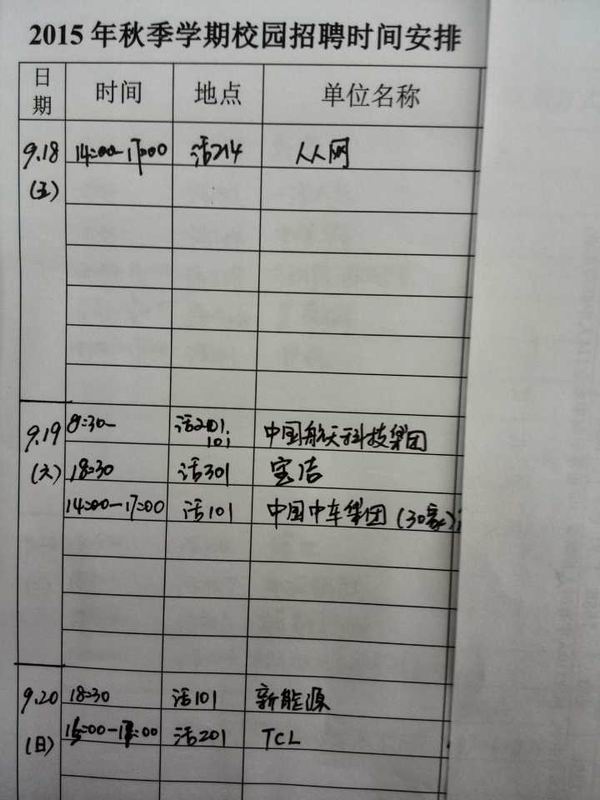 2015年秋季学期校园招聘时间安排
日期 时间 地点 单位名称
9.18 14:00-17:00 活214 人人网
(五)
9.19 8:30- 活201. 中国航天科技集团
101
(六) 18:30 活301 宝洁
14:00-17:00 活101 中国中车集团 (30家)
9.20 18:30 活101 新能源
(日) 15:00-17:00 活201 TCL